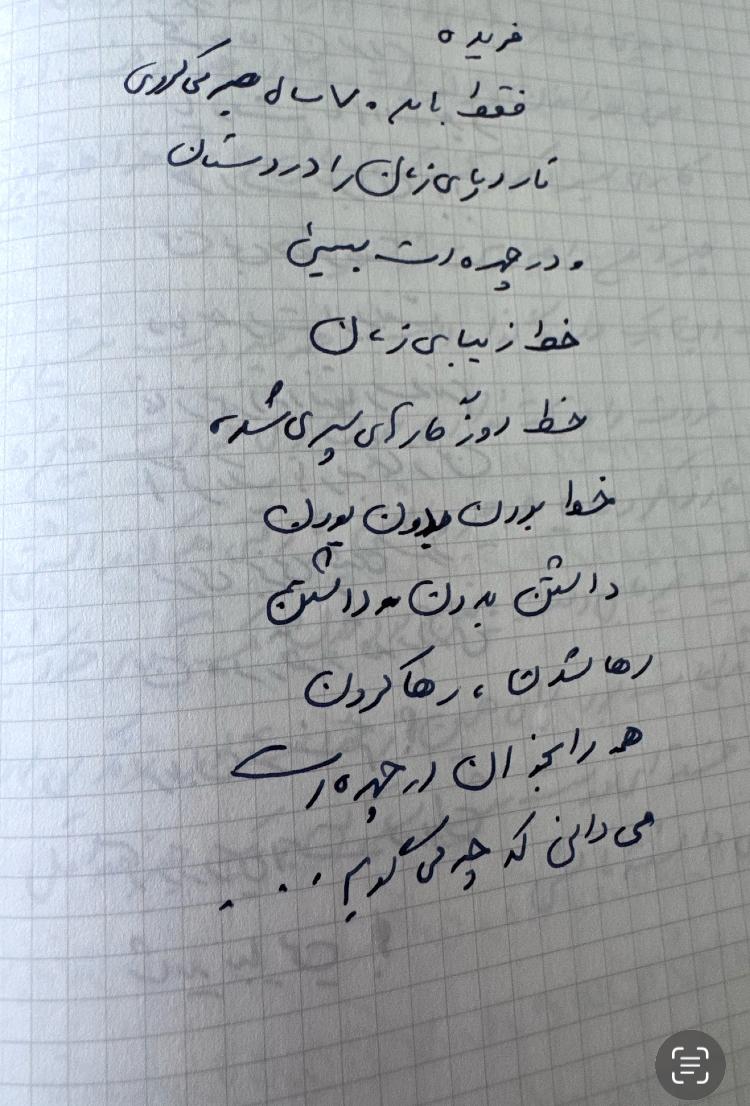 فریده
فقط باید ۷۰ سال صبر می‌کردی
تا ردپای زمان را در دستان
و در چهره‌ات ببینی
خط زیبای زمان
خط روزگارهای سپری شده
بودن بدون بودن
داشتن بدون نداشتن
رها شدن ، رها کردن
همه را بجز آن در چهره‌ات
می دانی که چه می گویم ....